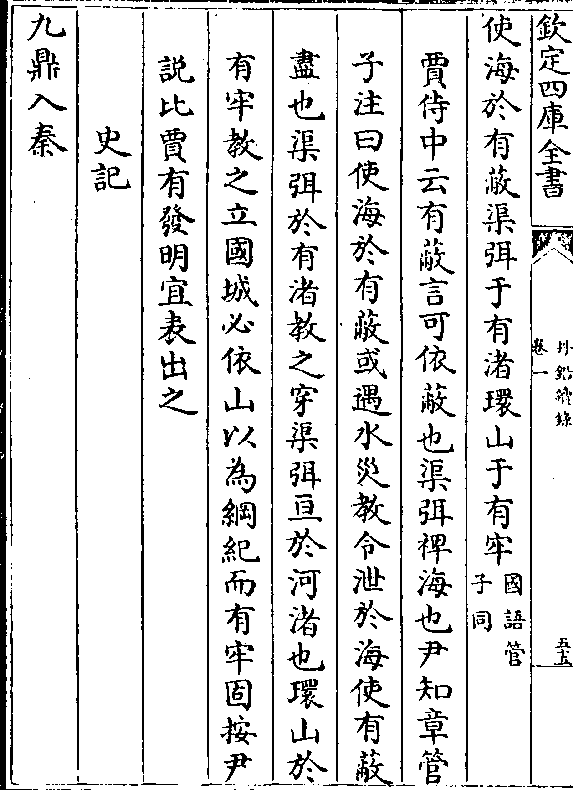 欽定四庫全書
丹鉛續錄
卷一
五五
使海於有蔽渠弭于有渚環山于有牢國語管
子同
賈侍中云有蔽言可依蔽也渠弭禆海也尹知章管
子注曰使海於有蔽或遇水災教令泄於海使有蔽
盡也渠弭於有渚教之穿渠弭亘於河渚也環山於
有牢教之立國城必依山以為綱紀而有牢固按尹
説比賈有發明宜表出之
史記
九鼎入秦